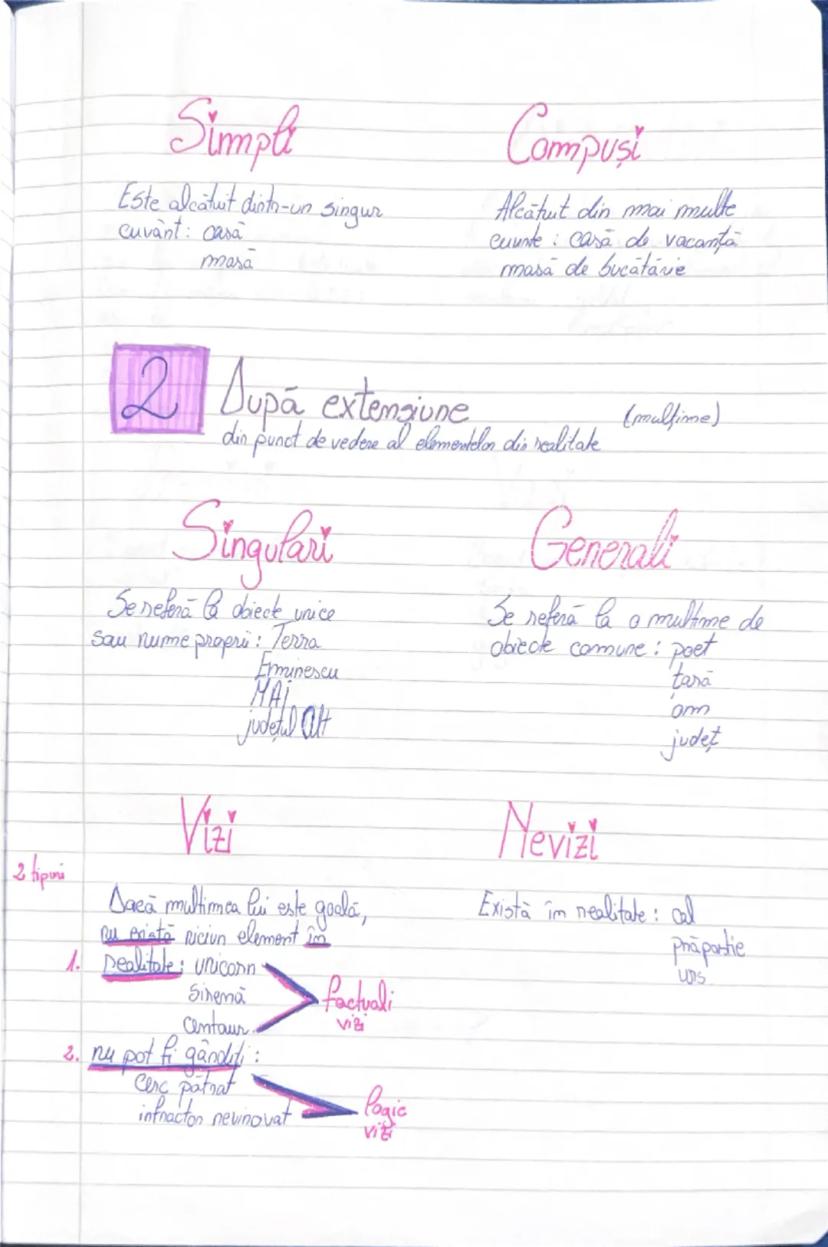 Simpli
Este alcătuit dintr-un singur
cuvânt: casă
masă
Compuși
Alcătuit din mai multe
cuvinte: casă de vacanță
masă de bucătărie
2
După extensiune (mulțime)
din punct de vedere al elementelor din realitate
Singulari
Se referă la obiecte unice
sau nume proprii: Terra
Eminescu
MAI
județul Olt
Generali
Se referă la o multime de
obiecte comune: poet
țară
om
județ
Vizi
2 tipuri
Dacă multimea lui este goală,
nu există niciun element în
1. realitate: unicorn
sirenă
centaur
factuali
vizi
2. nu pot fi gândiți:
cerc pătrat
infractor nevinovat
logic
vizi
Nevizi
Există în realitate: cal
prăpastie
urs